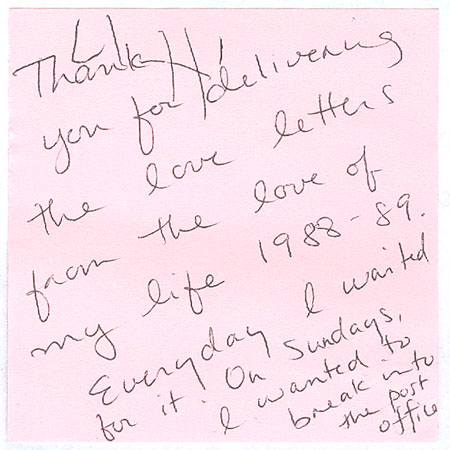 Thank
you for delivering
the love letters
from the love of
my life 1988-89.
Everyday I waited
for it. On Sundays,
I wanted to
break into
the post
office